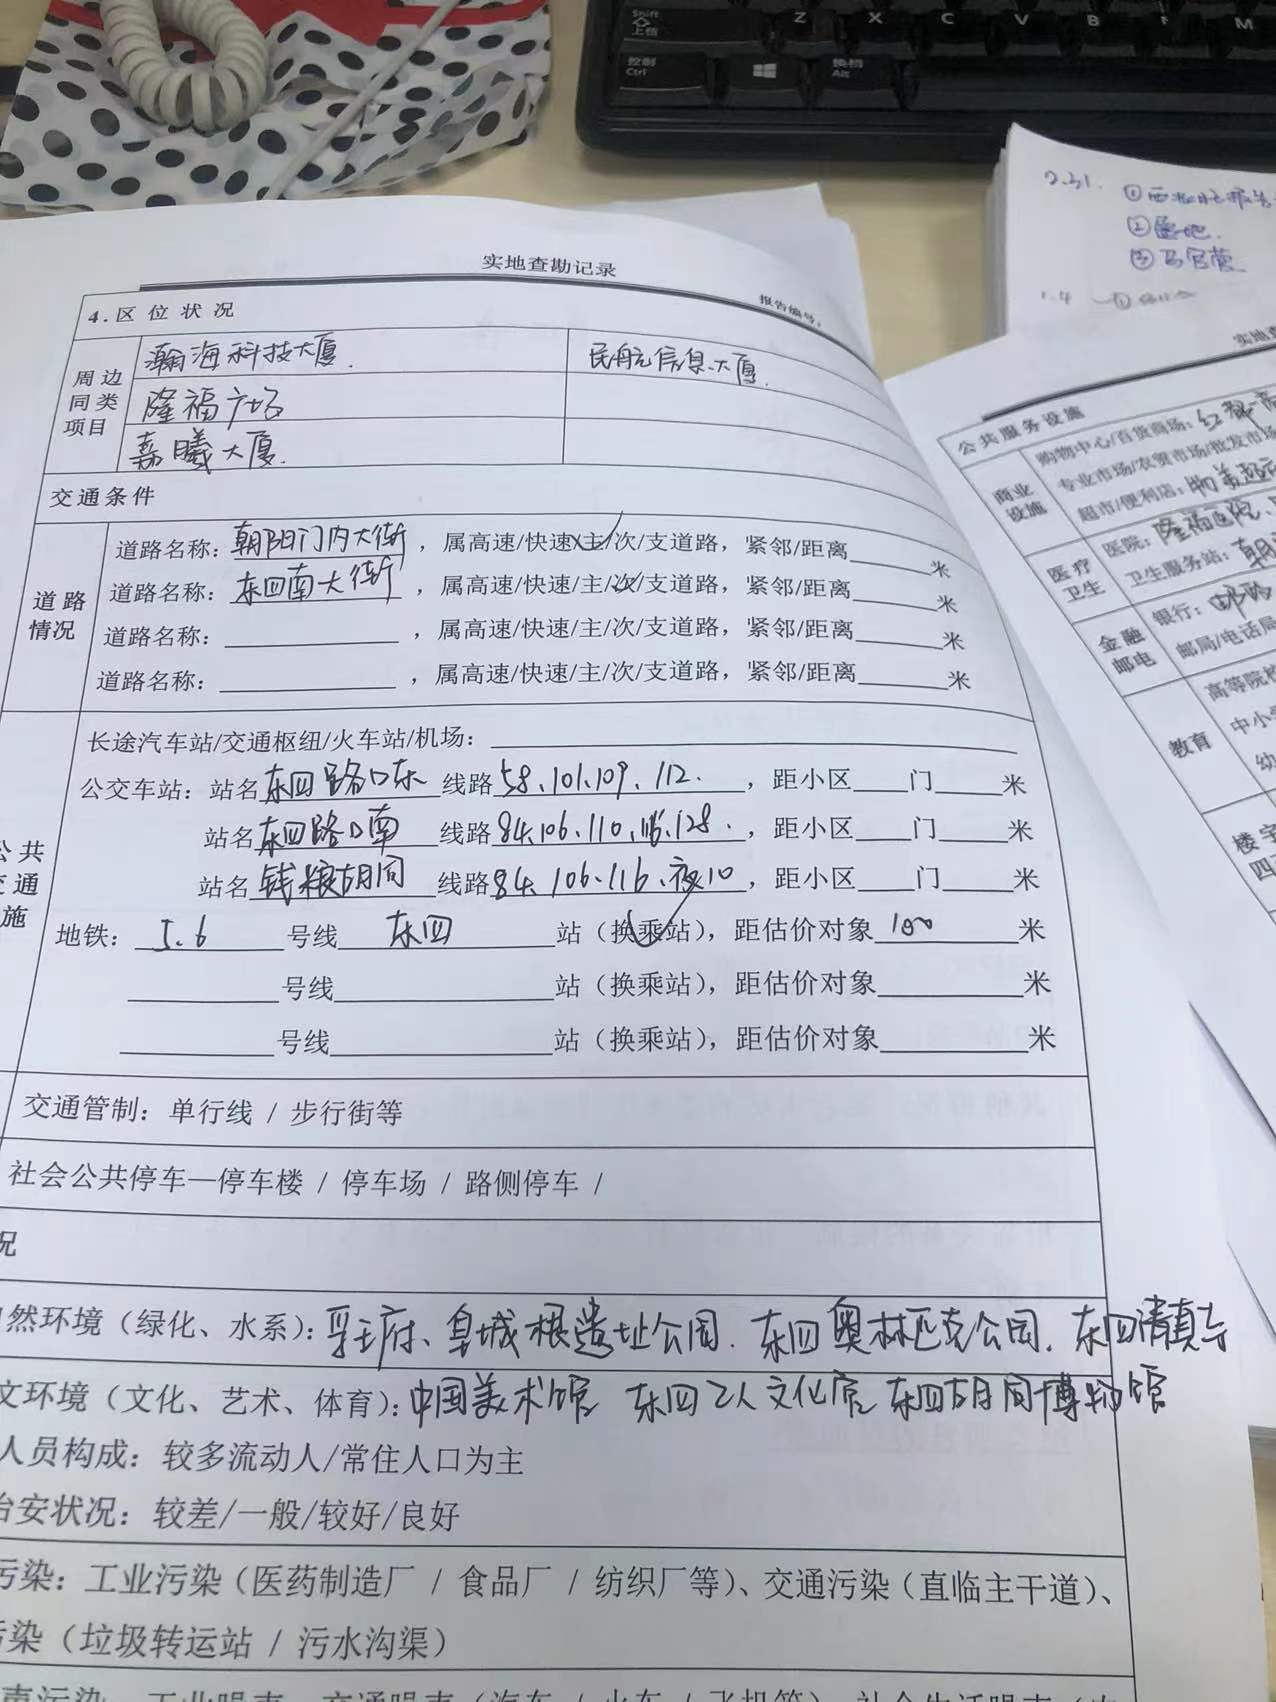 Shift
上档
Z X C V B M
控制
Ctrl
换档
Alt
2.31. ①
②
③马官营
1.4 ①
实地查勘记录
报告编号：
4.区位状况
周边同类项目
瀚海科技大厦.
民航信息大厦.
隆福广场
嘉曦大厦.
交通条件
道路情况
道路名称：朝阳门内大街，属高速/快速/主/次/支道路，紧邻/距离______米
道路名称：东四南大街，属高速/快速/主/次/支道路，紧邻/距离______米
道路名称：______，属高速/快速/主/次/支道路，紧邻/距离______米
道路名称：______，属高速/快速/主/次/支道路，紧邻/距离______米
公共交通
施
长途汽车站/交通枢纽/火车站/机场：
公交车站：站名东四路口东 线路58、101、109、112.，距小区____门____米
站名东四路口南 线路84、106、110、116、128.，距小区____门____米
站名钱粮胡同 线路84、106、116、夜10，距小区____门____米
地铁：5.6号线 东四 站（换乘站），距估价对象100米
______号线______站（换乘站），距估价对象______米
______号线______站（换乘站），距估价对象______米
交通管制：单行线 / 步行街等
社会公共停车—停车楼 / 停车场 / 路侧停车 /
况
然环境（绿化、水系）：孚王府、皇城根遗址公园．东四奥林匹克公园．东四清真寺
文环境（文化、艺术、体育）：中国美术馆 东四工人文化宫 东四胡同博物馆
人员构成：较多流动人/常住人口为主
治安状况：较差/一般/较好/良好
污染：工业污染（医药制造厂 / 食品厂 / 纺织厂等）、交通污染（直临主干道）、
污染（垃圾转运站 / 污水沟渠）
声污染
实地查
公共服务设施
商业设施
购物中心/百货商场：红
专业市场/农贸市场/批发市场
超市/便利店：物美超市
医疗卫生
医院：隆福医院、
卫生服务站：朝
金融邮电
银行：邮政
邮局/电话局
教育
高等院校
中小学
幼
楼宇
四